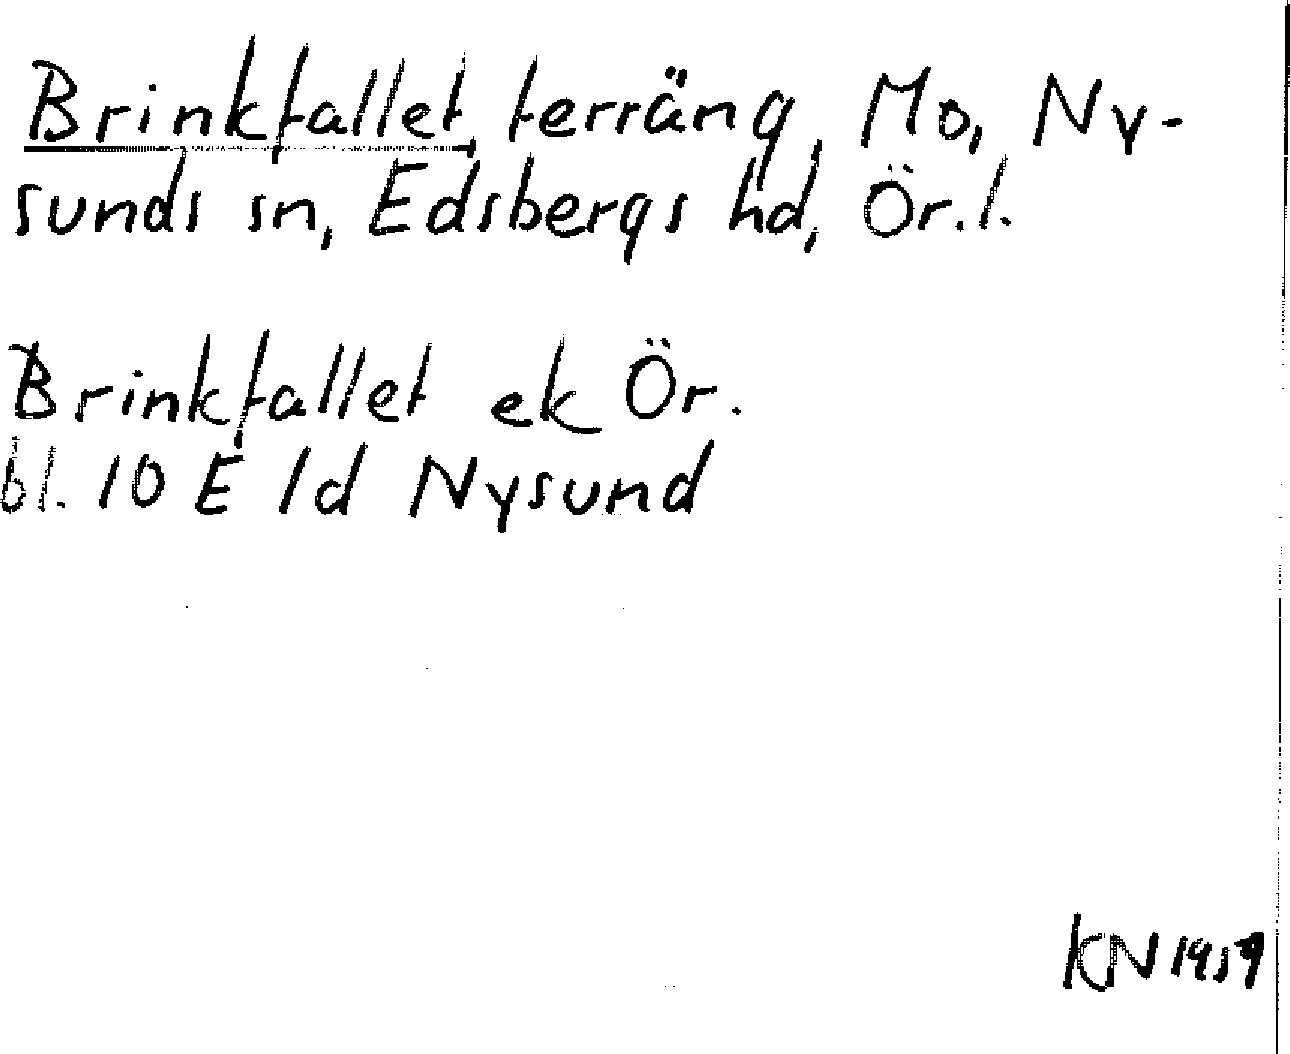 Brinkfallet, terräng, Mo, Ny-
sunds sn, Edsbergs hd, Ör.l.
Brinkfallet ek Ör.
bl. 10 E 1d Nysund
KN